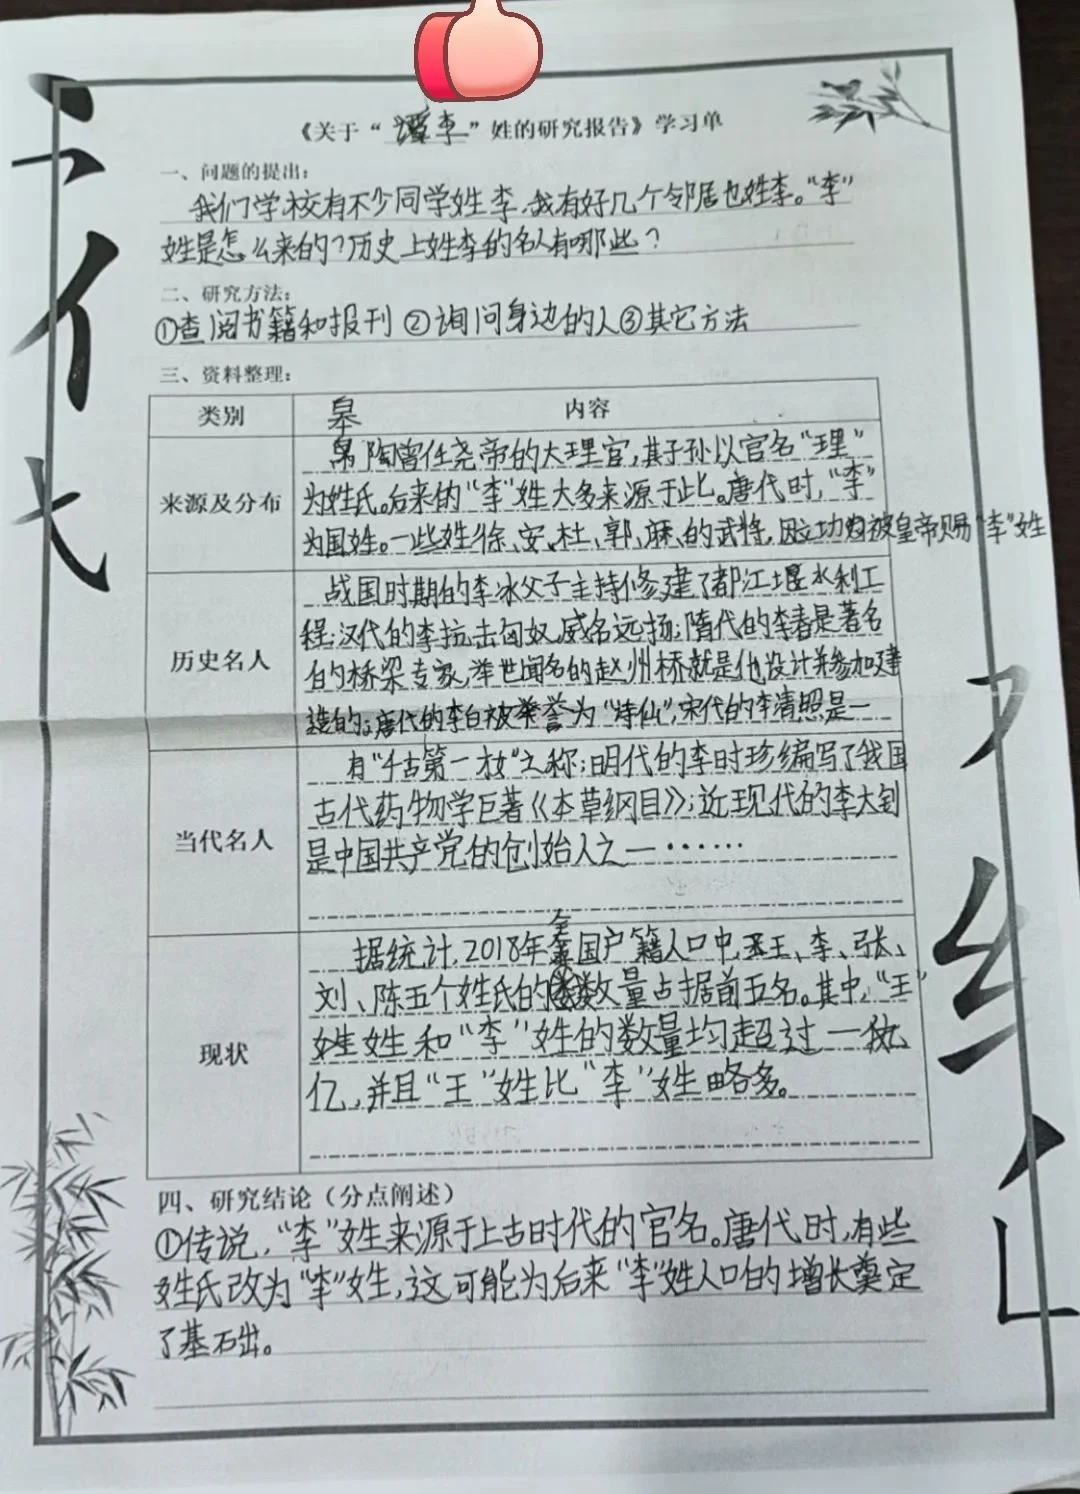 《关于“谭李”姓的研究报告》学习单
一、问题的提出:
我们学校有不少同学姓李,我有好几个邻居也姓李。“李”
姓是怎么来的?历史上姓李的名人有哪些?
二、研究方法:
①查阅书籍和报刊 ②询问身边的人③其它方法
三、资料整理:
类别
皋
内容
来源及分布
陶曾任尧帝的大理官,其子孙以官名“理”
为姓氏。后来的“李”姓大多来源于此。唐代时,“李”
为国姓。一些姓徐、安、杜、郭、麻、的武将,因立功被皇帝赐“李”姓
历史名人
战国时期的李冰父子主持修建了都江堰水利工
程;汉代的李抗击匈奴,威名远扬;隋代的李春是著名
的桥梁专家,举世闻名的赵州桥就是他设计并参加建
造的;唐代的李白被誉为“诗仙”,宋代的李清照是一
当代名人
有“千古第一才女”之称;明代的李时珍编写了我国
古代药物学巨著《本草纲目》;近现代的李大钊
是中国共产党的创始人之一······
现状
全
据统计,2018年国户籍人口中,王、李、张、
刘、陈五个姓氏的数量占据前五名。其中,“王”
姓姓和“李”姓的数量均超过一
亿,并且“王”姓比“李”姓略多。
四、研究结论(分点阐述)
①传说,“李”姓来源于上古时代的官名。唐代时,有些
姓氏改为“李”姓,这可能为后来“李”姓人口的增长奠定
了基石出。